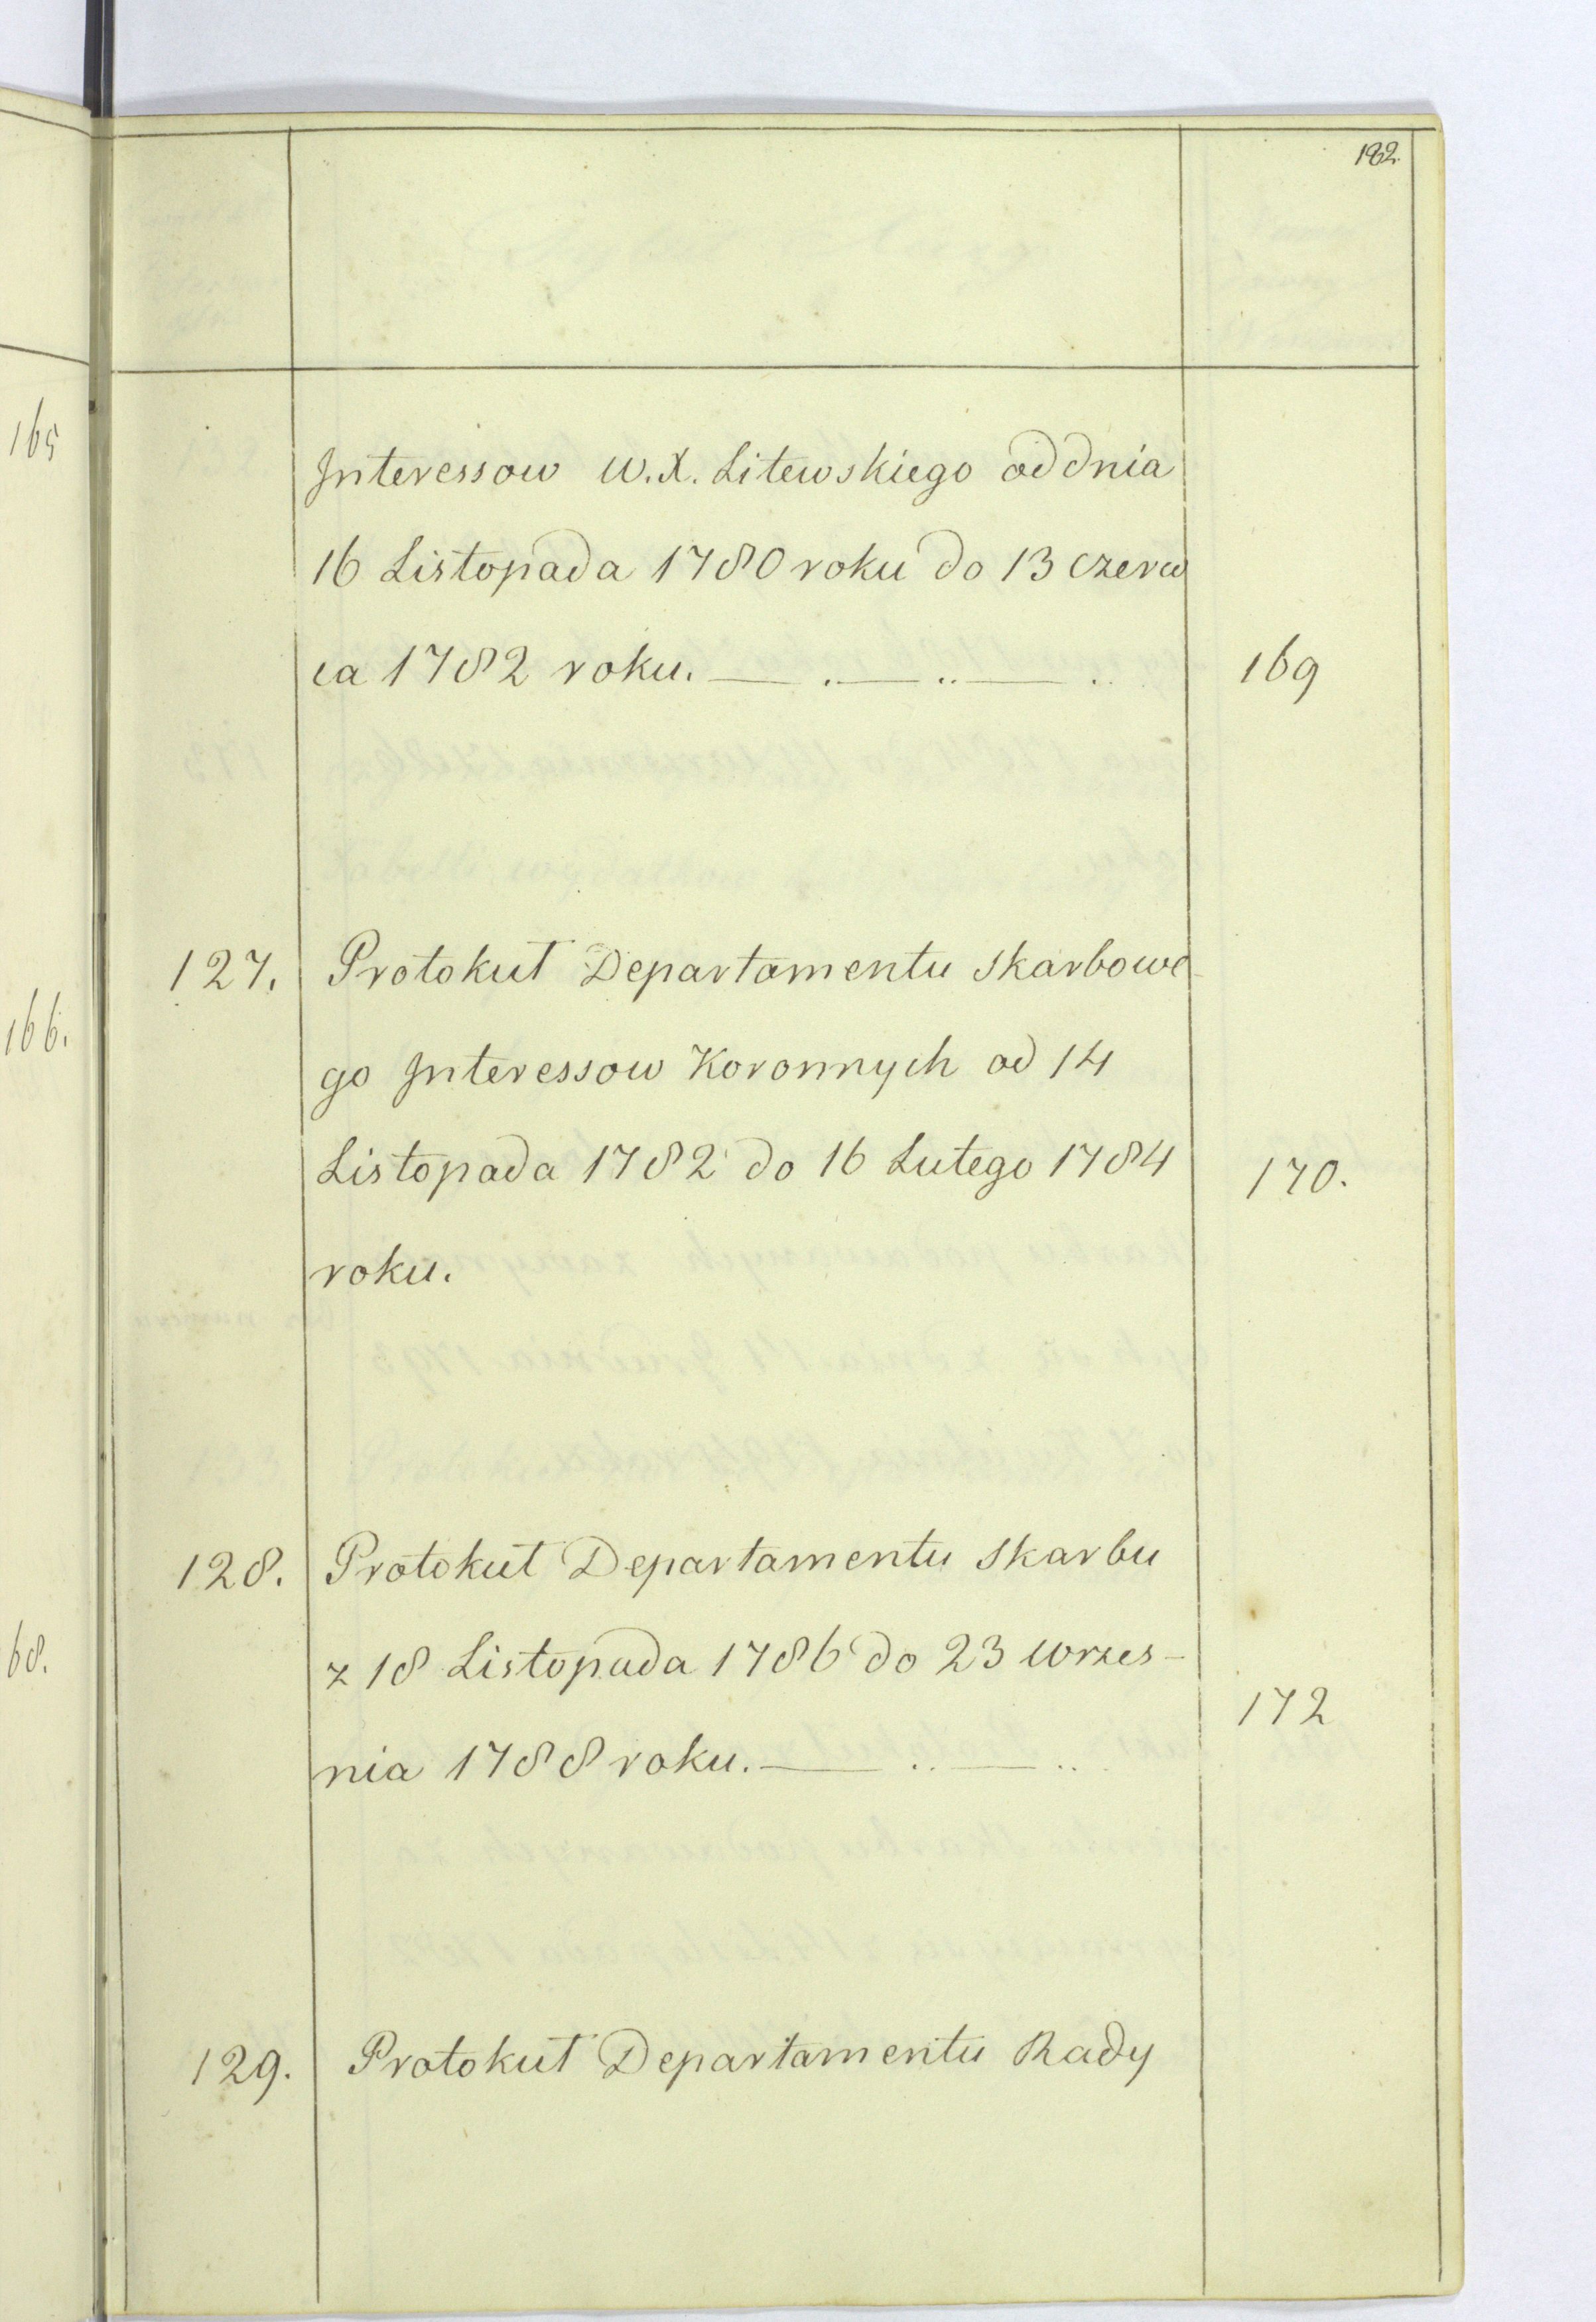 182.
165
Interessow W.X. Litewskiego od dnia
16 Listopada 1780 roku do 13 czerw
ca 1782 roku. 169
127. Protokuł Departamentu Skarbowe
166.
go Interessow Koronnych od 14
Listopada 1782 do 16 Lutego 1784 170.
roku.
128. Protokuł Departamentu Skarbu
68.
z 18 Listopada 1786 do 23 Wrzes-
172
nia 1788 roku.
129. Protokuł Departamentu Rady